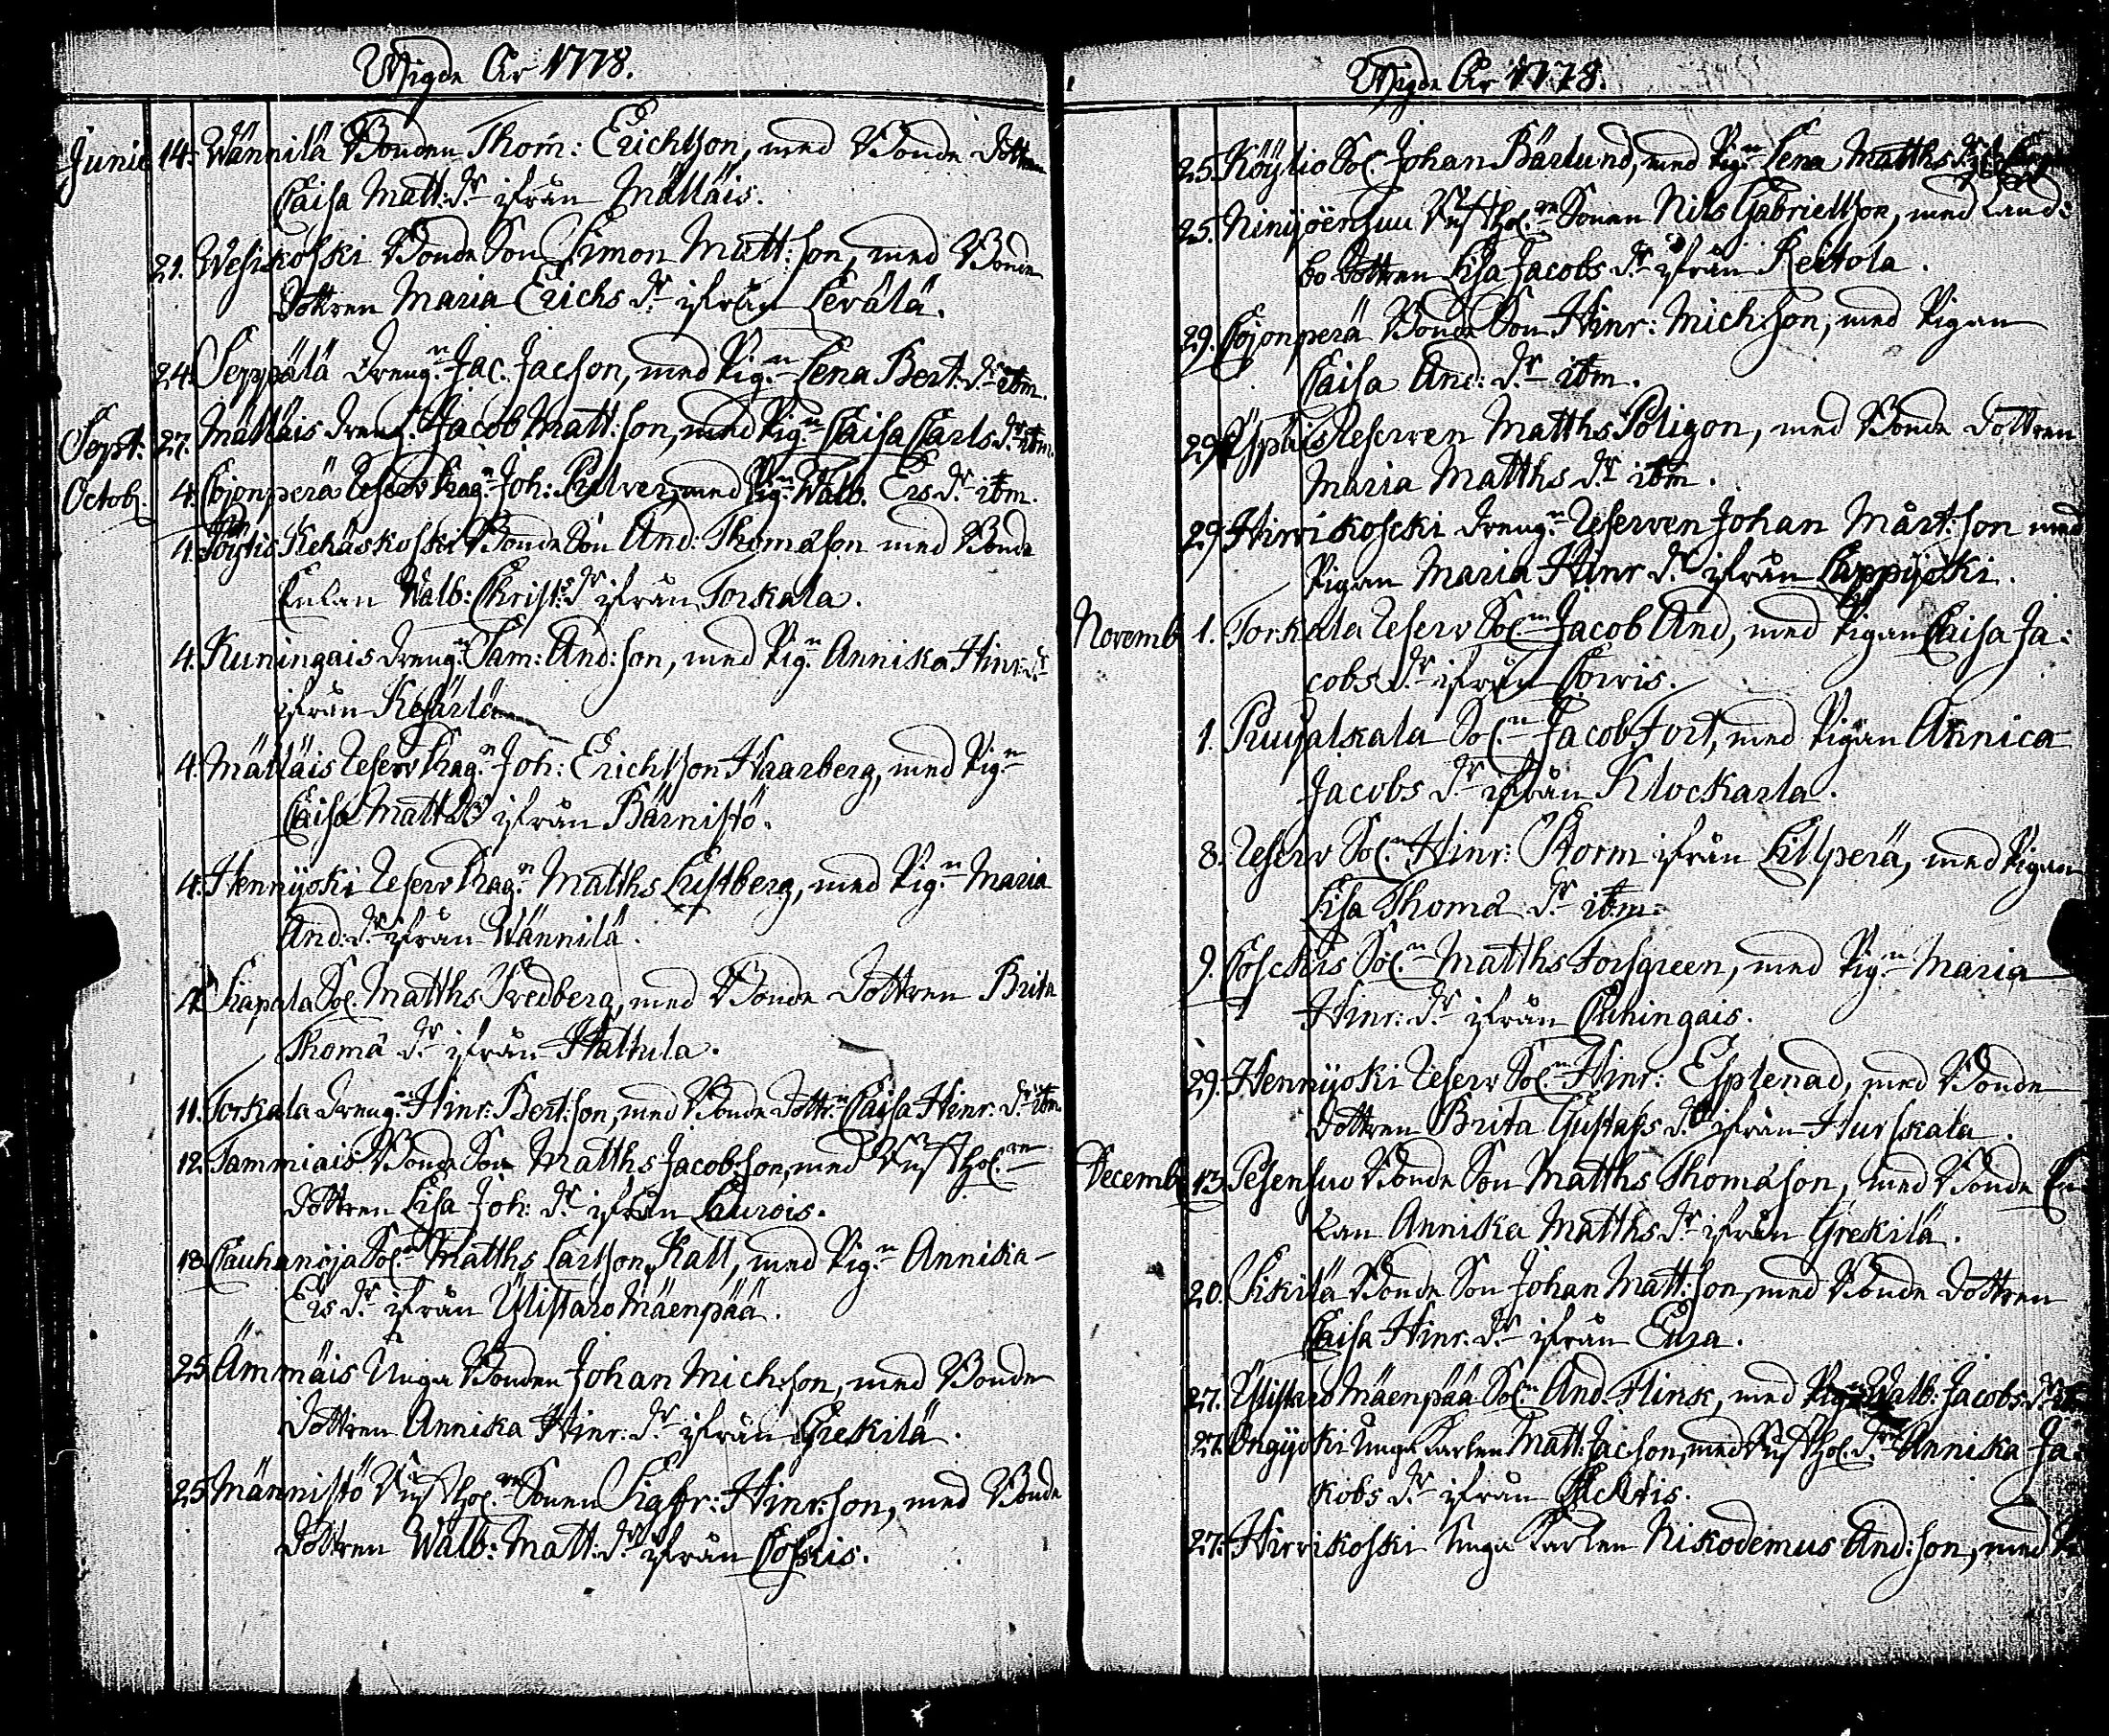 Wigde År 1778.
Junii 14. Wännilä Bonden Thom: Erichsson, med Bonde Dottren
Caisa Matt: dr ifrån Mälläis.
21. Wesikoski Bonde Son Simon Matt:son, med Bonde
Dottren Maria Erichs dr ifrån Lerälä.
24. Seppälä Dreng:n Jac. Jacson, med Pig:n Lena Bert: dr ibm.
Sept: 27. Mälläis Dreng:n Jacob Matt:son, med Pig:n Caisa Carls dr ibm.
Octob. 4. Cojonperä Reserv Drag:n Joh: Pulver, med Pig:n Walb. Ers dr ibm.
4. Kehäskoski Bonde Son And: Thomasson med Bonde
Enkan Walb: Christ: dr ifrån Torkala.
4. Kuningais Dreng:n Sam: And:son, med Pig:n Annika Hinr: dr
ifrån Kesärlä
4. Mälläis Reserv Drag:n Joh: Erichsson Haarberg, med Pig:n
Caisa Matt dr ifrån Bärnistö.
4. Hennijoki Reserv Drag:n Matths Lustberg, med Pig:n Maria
And: dr ifrån Wännilä.
4. Matths Fredberg, med Bonde Dottren Brita
Thoma dr ifrån Hattula.
11. Torkala Dreng:n Hinr: Bert:son, med Bonde Dottr:n Caisa Hinr: dr ibm.
12. Tammiais Bonde Son Matths Jacobsson, med Rusthol:rn
Dottren Lisa Joh: dr ifrån Laurois.
18. Cauhanoja Sol:n Matths Carlsson Katt, med Pig:n Annika
Ers dr ifrån Ylistaro Mäenpää.
25. Ämmäis Unga Bonden Johan Michsson, med Bonde
Dottren Annika Hinr: dr ifrån Grekilä.
25. Männistö Rusthol:rn Sonen Sigfr: Hinr:son, med Bonde
Dottren Walb: Matt: dr ifrån Coskis.
Wigde År 1778.
25. Köyliö Sol: Johan Bärlund, med Pig:n Lena Matths dr
25. Ninijoensuu Rusthol:rn Sonen Nils Gabrielsson, med Land:
bo Dottren Lisa Jacobs dr ifrån Keitola.
29. Cojonperä Bonde Son Hinr: Michsson, med Pigan
Caisa And: dr ibm.
29. Reserven Matths Poligon, med Bonde Dottren
Maria Matths dr ibm.
29. Hirvikoscki Dreng:n Reserven Johan Mårt:son med
Pigan Maria Hinr dr ifrån Lappijoki.
Novemb 1. Torkala Reserv Sol:n Jacob And, med Pigan Caisa Ja:
cobs dr ifrån Corvis.
1. Ruujalskala Sol:n Jacob Fort, med Pigan Annica
Jacobs dr ifrån Klockarla.
8. Reserv Sol:n Hinr: Storm ifrån Lillperä, med Pigan
Lisa Thoma dr ibm.
9. Cosckis Sol:n Matths Forsgreen, med Pig:n Maria
Hinr: dr ifrån Cuhingais.
29. Hennijoki Reserv Sol:n Hinr: Esplenad, med Bonde
Dottren Brita Gustafs dr ifrån Hurskala.
Decemb 13. Pesensuo Bonde Son Matths Thomasson, med Bonde En
kan Annika Matths dr ifrån Grekilä.
20. Sikilä Bonde Son Johan Matt:son, med Bonde Dottren
Caisa Hinr: dr ifrån Eura.
27. Ylistaro Mäenpää Sol:n And: Flink, med Pig:n Walb: Jacobs dr
27. Ongijoki Unga Karlen Matt: Jacson, med Rusthol: dr Annika Ja:
kobs dr ifrån
27. Hirvikoski Unga Karlen Nikodemus And:son, med